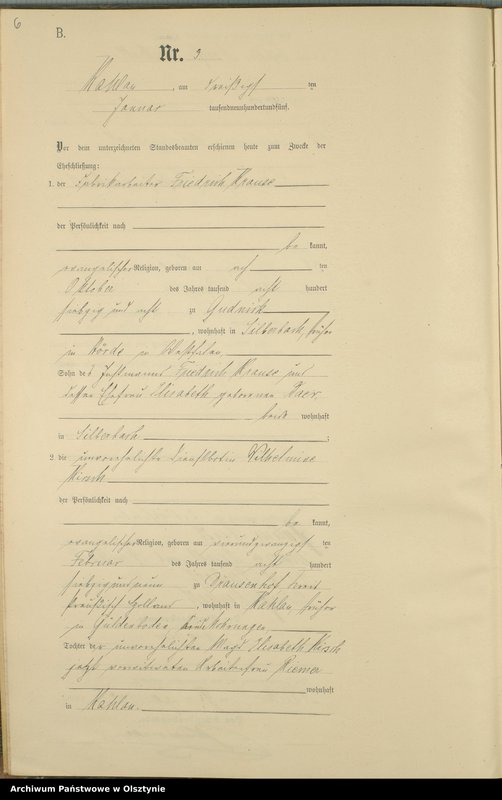 6
B.
Nr. 3.
Mahlau, am dreißigst ten
Januar tausendneunhundertundfünf.
Vor dem unterzeichneten Standesbeamten erschienen heute zum Zwecke der
Eheschließung:
1. der Fabrikarbeiter Friedrich Krause
der Persönlichkeit nach
be kannt,
evangelischer Religion, geboren am ach ten
Oktober des Jahres tausend acht hundert
siebzig und acht zu Gudnick
, wohnhaft in Silberbach, früher
in Hörde in Westfalen
Sohn des Instmanns Friedrich Krause und
dessen Ehefrau Elisabeth geborenen
beide wohnhaft
in Silberbach
2. die unverehelichte Dienstbotin Wilhelmine
Hirsch
der Persönlichkeit nach
be kannt,
evangelischer Religion, geboren am vierundzwanzigs ten
Februar des Jahres tausend acht hundert
siebzig und neun zu Draulsenhof Kreis
Preußisch Holland, wohnhaft in Mahlau, früher
in Güldenboden Kreis Mohrungen
Tochter der unverehelichten Magd Elisabeth Hirsch
jetzt verwitweten Arbeiterfrau Riemer
wohnhaft
in Mahlau.
Archiwum Państwowe w Olsztynie